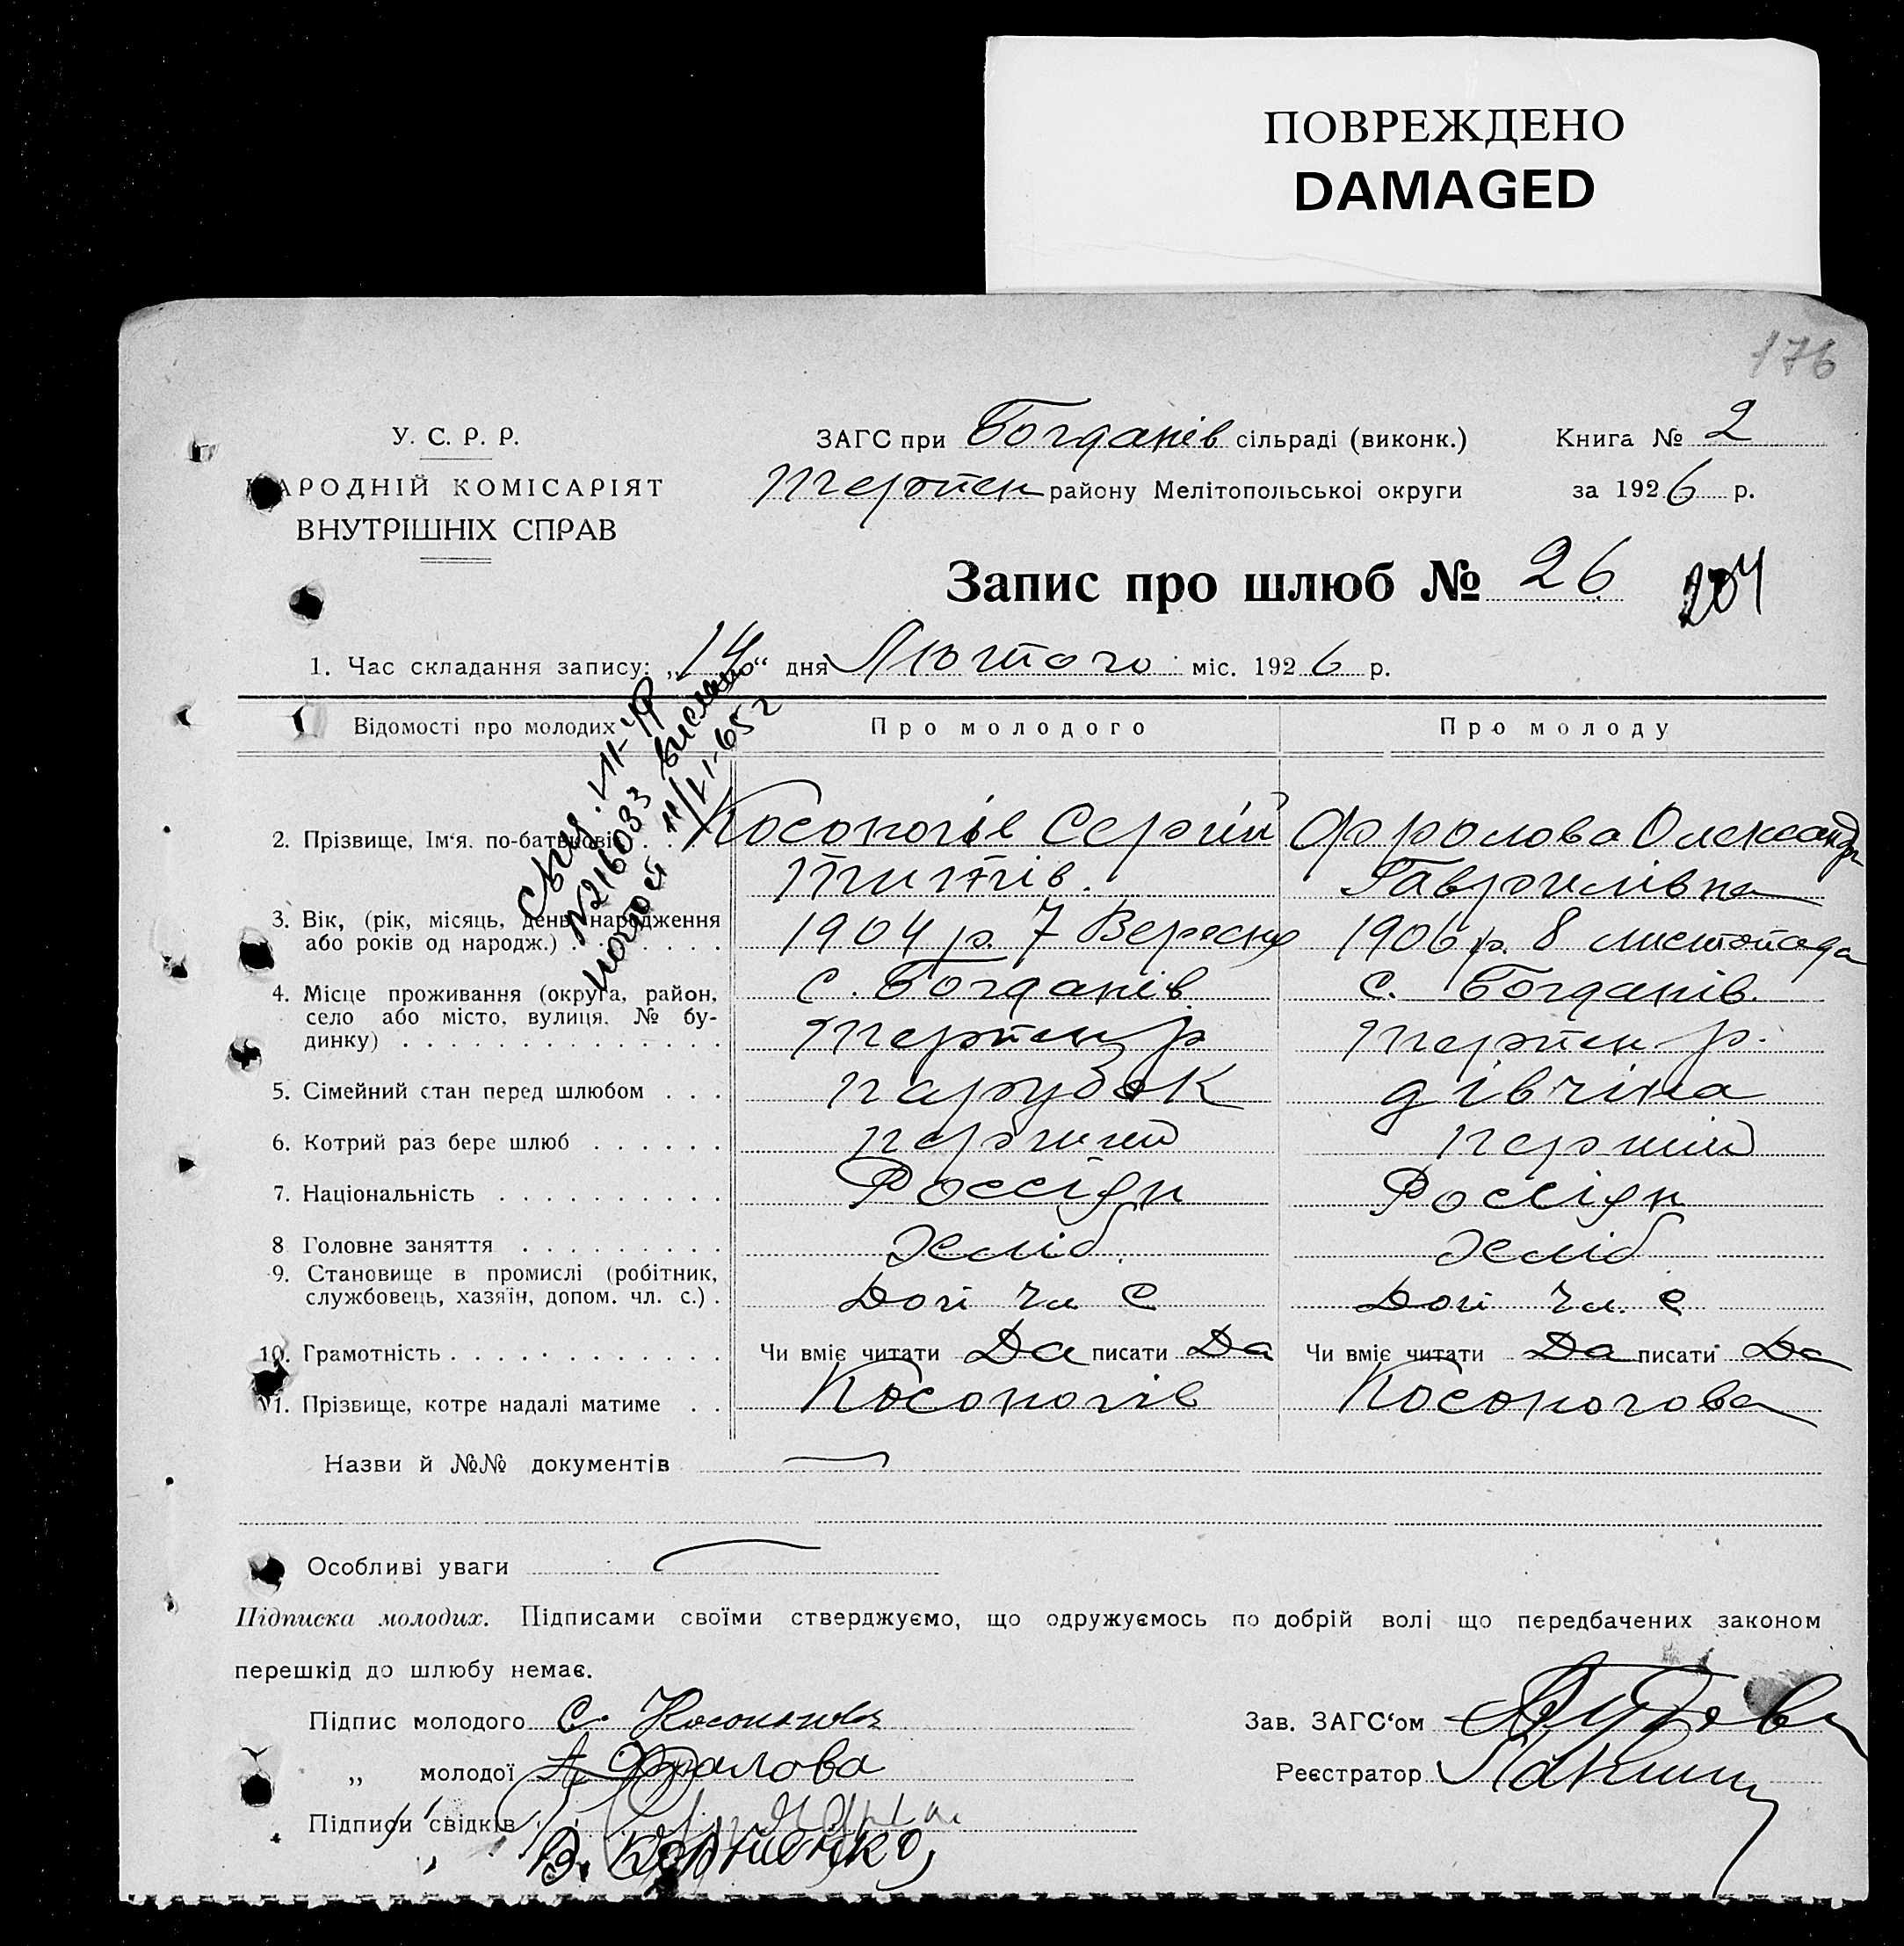 ПОВРЕЖДЕНО
DAMAGED
176
У. С. Р. Р.
НАРОДНІЙ КОМІСАРІЯТ
ВНУТРІШНІХ СПРАВ
ЗАГС при Богданів сільраді (виконк.) Книга № 2
Терпен району Мелітопольської округи за 1926 р.
Запис про шлюб № 26 204
1. Час складання запису: „14“ дня Лютого міс. 1926 р.
Відомості про молодих Про молодого Про молоду
2. Прізвище, Ім'я, по-батькові Косоногів Сергій Фролова Олександр
Титів. Гаврилівна
3. Вік, (рік, місяць, день народження 1904 р. 7 Вересня 1906 р. 8 листопада
або років од народж.)
4. Місце проживання (округа, район, с. Богданів с. Богданів.
село або місто, вулиця, № бу-
динку) Терпен р Терпен р.
5. Сімейний стан перед шлюбом парубок дівчина
6. Котрий раз бере шлюб перший перший
7. Національність Россіян Россіян
8 Головне заняття Хліб. Хліб
9. Становище в промислі (робітник,
службовець, хазяїн, допом. чл. с.) Доп чл с Доп чл. с
10. Грамотність Чи вміє читати Да писати Да Чи вміє читати Да писати Да
11. Прізвище, котре надалі матиме Косоногів Косоногова
Назви й №№ документів
Особливі уваги
Підписка молодих. Підписами своїми стверджуємо, що одружуємось по добрій волі що передбачених законом
перешкід до шлюбу немає.
Підпис молодого С. Косоногов Зав. ЗАГС'ом
„ молодої А Фралова Реєстратор
Підписи свідків
„ В. Корниенко
№216033 выслано
почтой 11/VI-65г